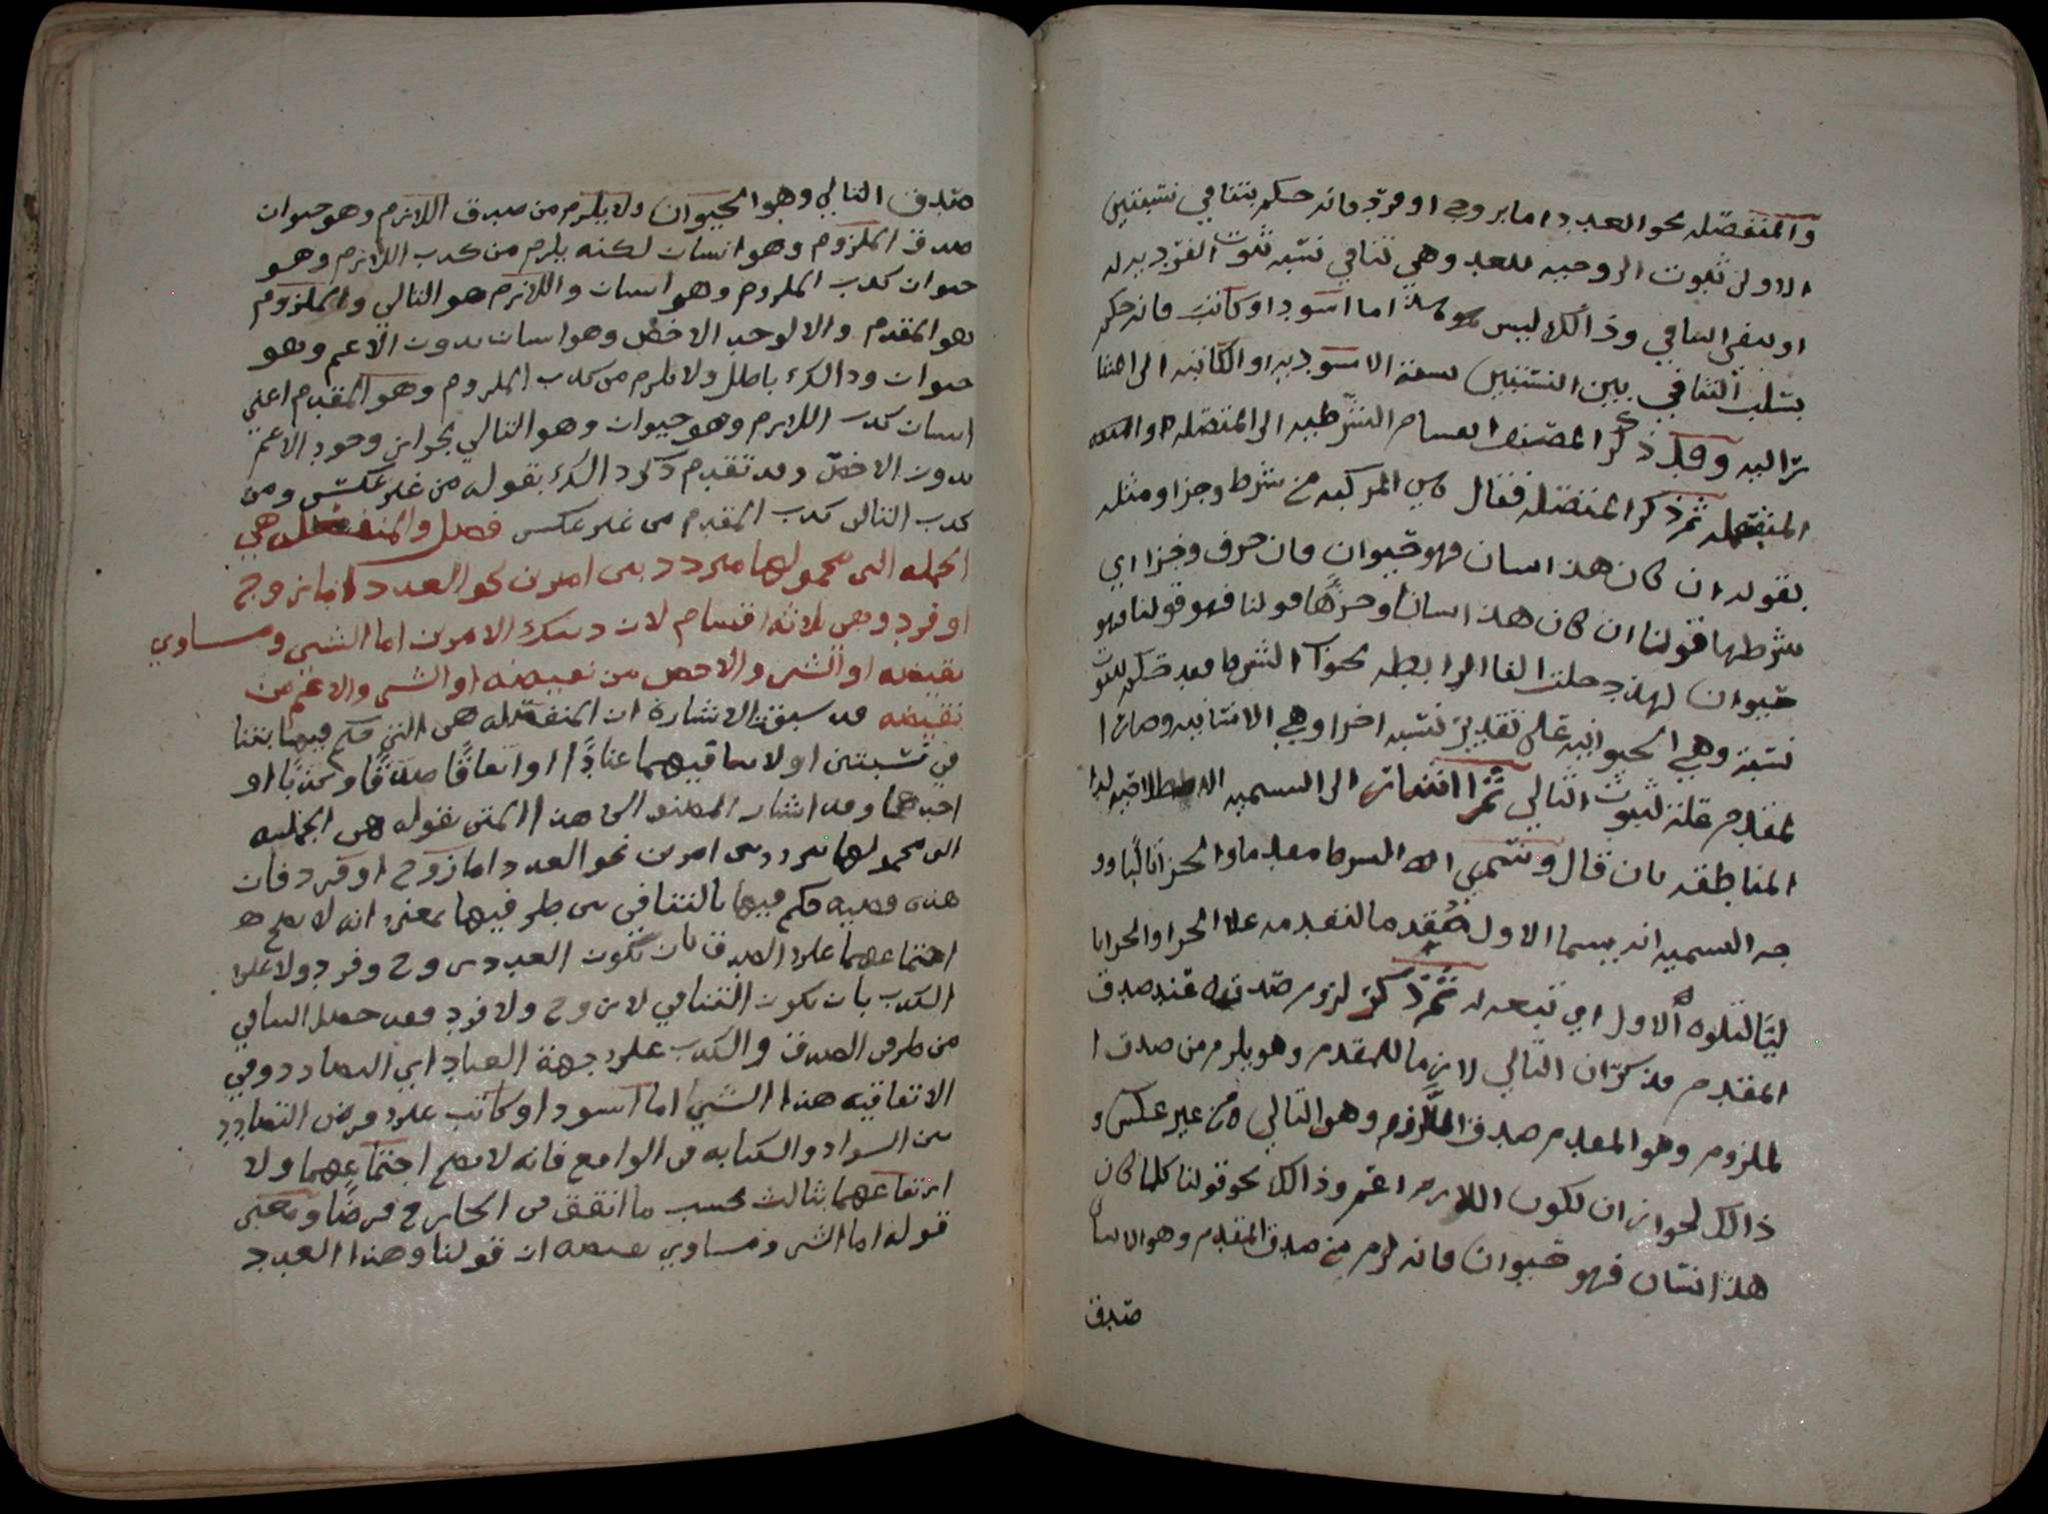 والمنفصله نحو العدد اما بزوج او فرد فانه حكم بتنافي نسبتين
الاولى ثبوت الزوجيه للعدد وهي تنافي نسبه ثبوت الفرديه له
او بنفي التنافي وذالك ليس هذا اما اسود او كاتب فانه حكم
بسلب التنافي بين النسبتين نسبة الاسوديه او الكاتبه الى
اليه وقد ذكر المصنف انقسام الشرطيه الى المتصله والمنفصله
ثم ذكر المتصله فقال المركبه من شرط وجزا ومثله
بقوله ان كان هذا انسان فهو حيوان فان حرف وجزا اي
شرطها قولنا ان كان هذا انسانا وجزاها قولنا فهو قولنا فهو
حيوان لهذا دخلت الفا الرابطه بجواب الشرط فقد حكم بثبوت
نسبة وهي الحيوانيه على تقدير نسبه اخرا وهي الانسانيه وصار ا
لمقدم علة لثبوت التالي ثم اشار الى التسميه الاصطلاحيه لدا
المناطقه بان قال وتسمي اداه الشرط مقدما والجزا تاليا وو
جه التسميه انه يسما الاول مقدما لتقدمه على الجزا والجزا تا
ليا لتلوه الاول اي تبعه له ثم ذكر لزوم صدقه عند صدق
المقدم فذكر ان التالي لازما للمقدم وهو يلزم من صدق ا
لملزوم وهو المقدم صدق اللازم وهو التالي من غير عكس و
ذالك لجواز ان يكون اللازم اعم وذالك نحو قولنا كلما كان
هذا انسان فهو حيوان فانه يلزم من صدق المقدم وهو الانسان
صدق
صدق التالي وهو الحيوان ولا يلزم من صدق اللازم وهو حيوان
صدق الملزوم وهو انسان لكنه يلزم من كذب اللازم وهو
حيوان كذب الملزوم وهو انسان واللازم هو التالي والملزوم
هو المقدم والا لوجد الاخص وهو انسان بدون الاعم وهو
حيوان وذالك باطل ولا يلزم من كذب الملزوم وهو المقدم اعني
انسان كذب اللازم وهو حيوان وهو التالي لجواز وجود الاعم
بدون الاخص وقد تقدم ذكر ذالك بقوله من غير عكس ومن
كذب التالي كذب المقدم من غير عكس فصل والمنفصله هي
الجمله التي محمولها مردد بين امرين نحو العدد اما زوج
او فرد وهي ثلاثه اقسام لان دينك الامرين اما الشي ومساوي
نقيضه او الشي والاخص من نقيضه او الشي والاعم من
نقيضه قد سبقت الاشارة ان المنفصله هي التي حكم فيها بتنا
في نسبتين او لا تنافيهما عنادا او اتفاقا صدقا وكذبا او
احدهما وقد اشار المصنف الى هذا المتن بقوله هي الجمليه
التي محمولها مردد بين امرين نحو العدد اما زوج او فرد فان
هذه قضيه حكم فيها بالتنافي بين طرفيها بمعنى انه لا يصح
اجتماعهما على الصدق بان تكون العدد زوج وفرد ولا على
الكذب بان يكون التنافي لا زوج ولا فرد فقد حصل التنافي
من طرفي الصدق والكذب على جهة العناد اي التضادد وفي
الاتفاقيه هذا الشي اما اسود او كاتب على فرض التضادد
بين السواد والكتابه في الواقع فانه لا يصح اجتماعهما ولا
ارتفاعهما بثالث بحسب ما اتفق في الخارج فرضا ومعنى
قوله اما الشي ومساوي نقيضه ان قولنا وهذا العدد